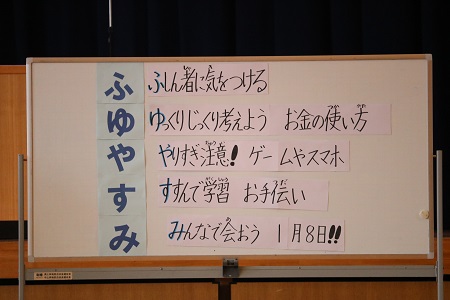 ふゆやすみ
ふしん者に気をつける
ゆっくりじっくり考えよう お金の使い方
やりすぎ注意! ゲームやスマホ
すすんで学習 お手伝い
みんなで会おう 1月8日!!